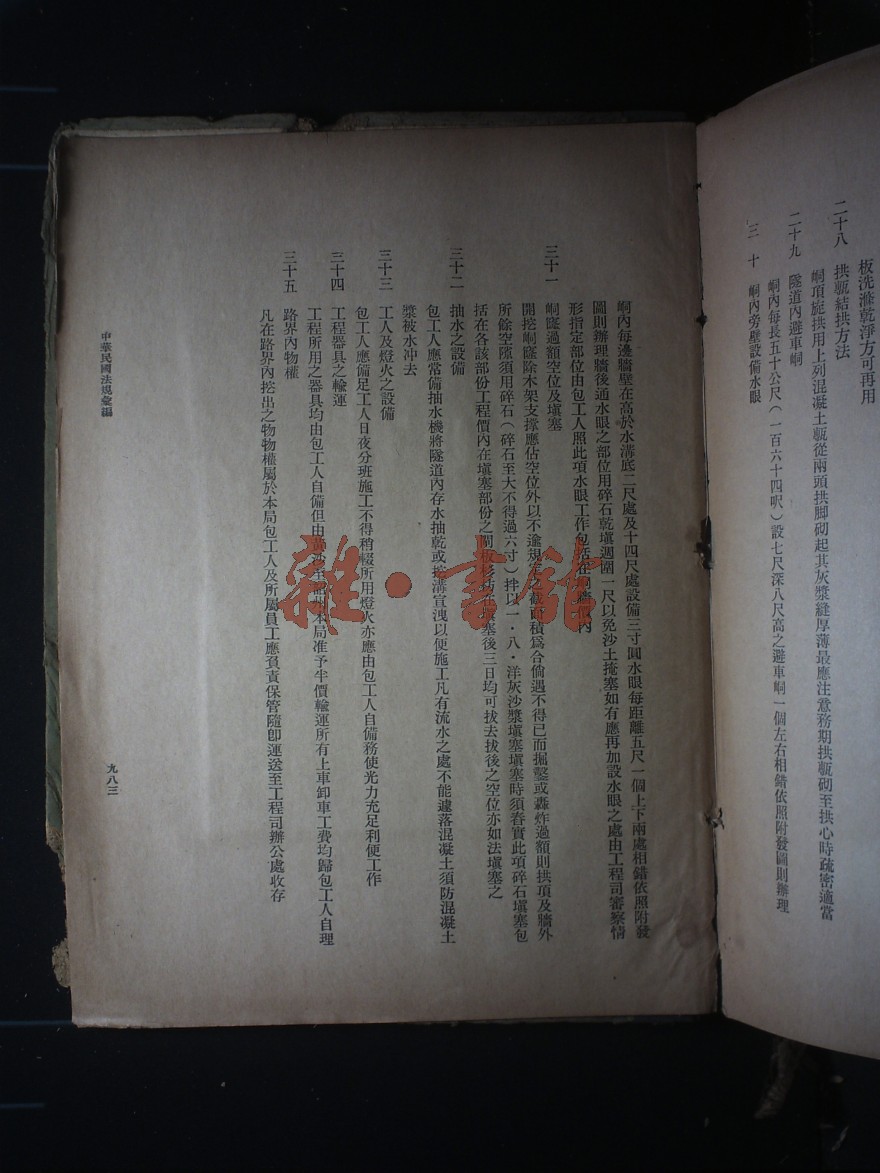 板洗滌乾淨方可再用
二十八　拱甎結拱方法
峒項旋拱用上列混凝土甎從兩頭拱脚砌起其灰漿縫厚薄最應注意務期拱甎砌至拱心時疏密適當
二十九　隧道內避車峒
峒內每長五十公尺（一百六十四呎）設七尺深八尺高之避車峒一個左右相錯依照附發圖則辦理
三　十　峒內旁壁設備水眼
峒內每邊牆壁在高於水溝底二尺處及十四尺處設備三寸圓水眼每距離五尺一個上下兩處相錯依照附發
圖則辦理牆後通水眼之部位用碎石乾塡週圍一尺以免沙土掩塞如有應再加設水眼之處由工程司審察情
形指定部位由包工人照此項水眼工作包括在峒牆價內
三十一　峒隧過額空位及塡塞
開挖峒隧除木架支撐應佔空位外以不逾規定之截面積爲合倘遇不得已而掘鑿或轟炸過額則拱項及牆外
所餘空隙須用碎石（碎石至大不得過六寸）拌以一・八・洋灰沙漿塡塞塡塞時須舂實此項碎石塡塞包
括在各該部份工程價內在塡塞部份之閘板杉枋在塡塞後三日均可拔去拔後之空位亦如法塡塞之
三十二　抽水之設備
包工人應常備抽水機將隧道內存水抽乾或挖溝宣洩以便施工凡有流水之處不能遽落混凝土須防混凝土
漿被水冲去
三十三　工人及燈火之設備
包工人應備足工人日夜分班施工不得稍輟所用燈火亦應由包工人自備務使光力充足利便工作
三十四　工程器具之輸運
工程所用之器具均由包工人自備但由黃沙至韶州本局准予半價輸運所有上車卸車工費均歸包工人自理
三十五　路界內物權
凡在路界內挖出之物物權屬於本局包工人及所屬員工應負責保管隨卽運送至工程司辦公處收存
中華民國法規彙編
九八三
雜・書館